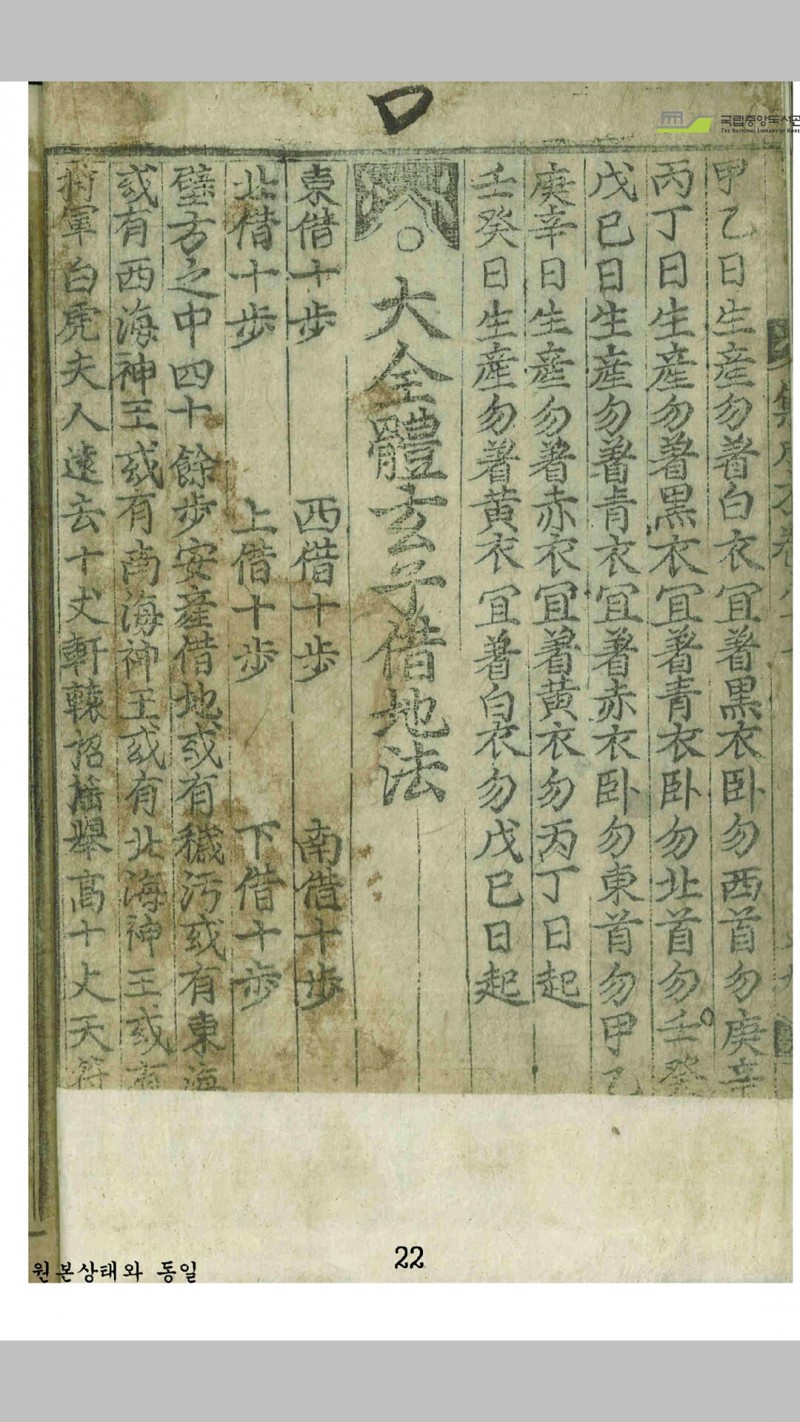 口
국립중앙도서관
THE NATIONAL LIBRARY OF KOREA
甲乙日生産勿著白衣冝著黒衣卧勿西首勿庚辛
丙丁日生産勿著黒衣冝著青衣卧勿北首勿壬癸
戊巳日生産勿著青衣冝著赤衣卧勿東首勿甲乙
庚辛日生産勿著赤衣冝著黄衣勿丙丁日起
壬癸日生産勿著黄衣冝著白衣勿戊巳日起
○大全體玄子借地法
東借十歩 西借十歩 南借十歩
北借十歩 上借十歩 下借十歩
壁方之中四十餘歩安産借地或有穢汚或有東海
或有西海神王或有南海神王或有北海神王或有
將軍白虎夫人遠去十丈軒轅招摇舉髙十丈天符
22
원본상태와 동일